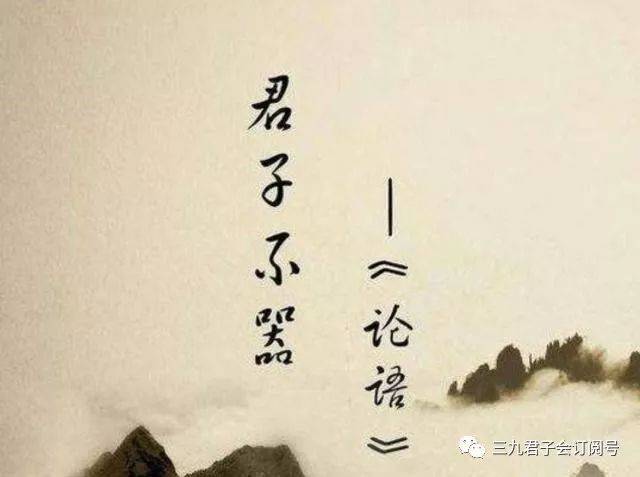 君子不器
—《论语》
三九君子会订阅号